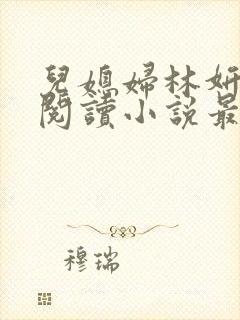 兒媳婦林妍
閱讀小說最
穆瑞